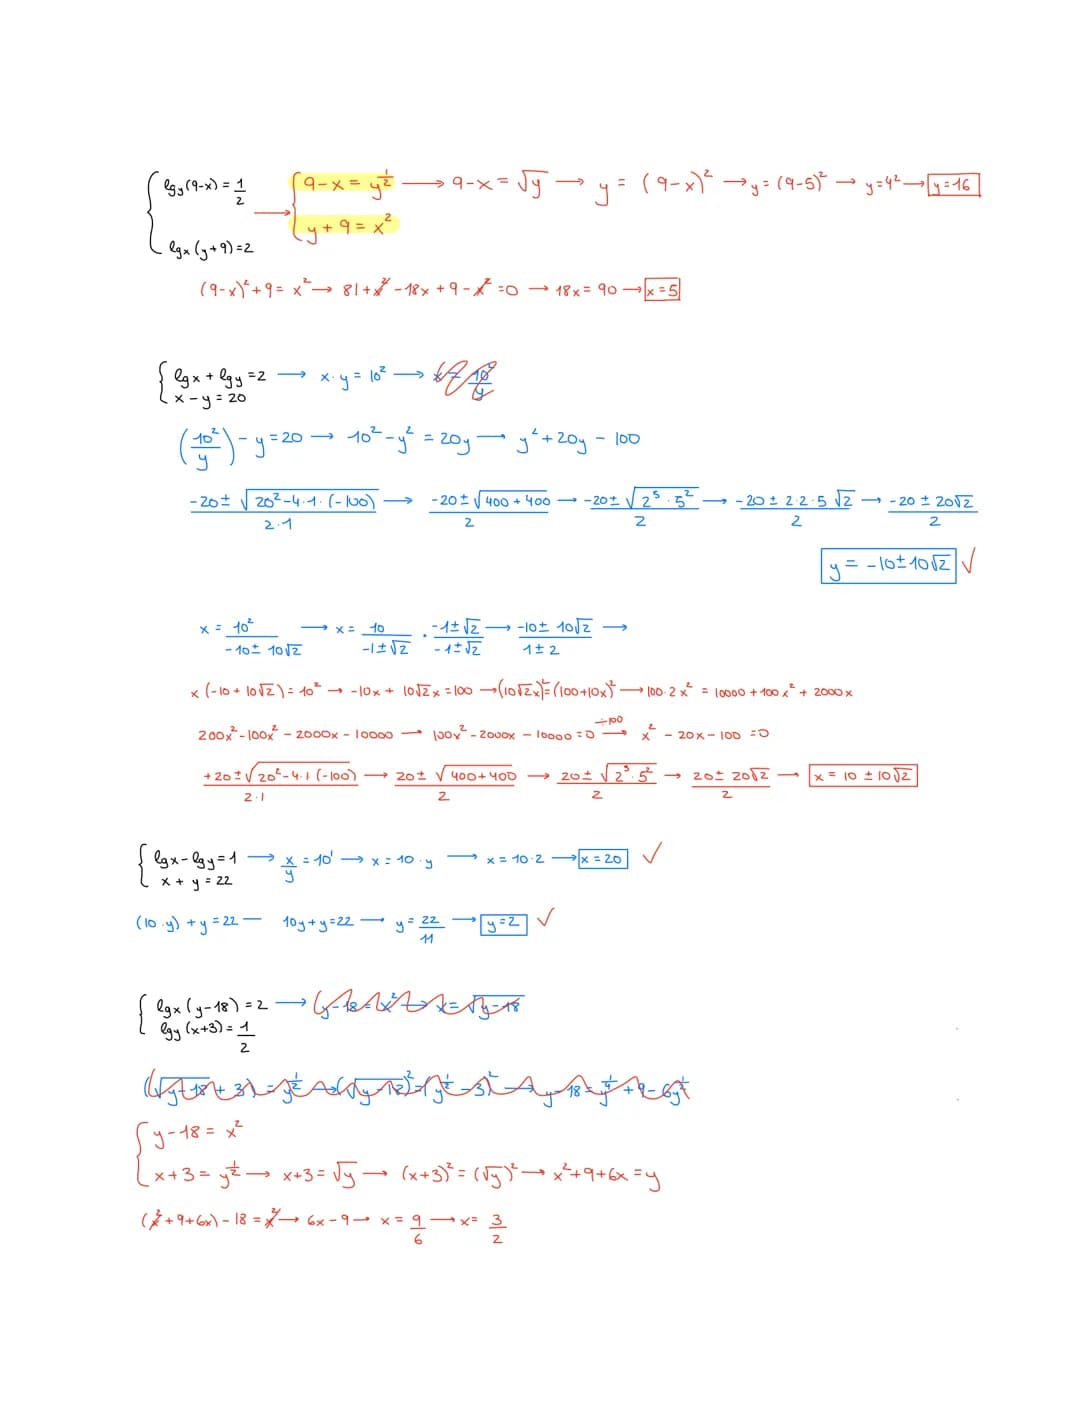 lg_y(9-x) = 1/2 → 9-x = y^(1/2) → 9-x = √y → y = (9-x)² → y = (9-5)² → y = 4² → y = 16
lg_x(y+9) = 2 y + 9 = x²
(9-x)² + 9 = x² → 81 + x² - 18x + 9 - x² = 0 → 18x = 90 → x = 5
lgx + lgy = 2 → x · y = 10² → x = 10²/y
x - y = 20
(10²/y) - y = 20 → 10² - y² = 20y → y² + 20y - 100
(-20 ± √(20² - 4·1·(-100)))/(2·1) → (-20 ± √(400 + 400))/2 → (-20 ± √(2⁵ · 5²))/2 → (-20 ± 2·2·5√2)/2 → (-20 ± 20√2)/2
y = -10 ± 10√2 ✓
x = 10²/(-10 ± 10√2) → x = 10/(-1 ± √2) · (-1 ± √2)/(-1 ± √2) → (-10 ± 10√2)/(1 ± 2) →
x(-10 + 10√2) = 10² → -10x + 10√2x = 100 → (10√2x)² = (100 + 10x)² → 100·2x² = 10000 + 100x² + 2000x
200x² - 100x² - 2000x - 10000 → 100x² - 2000x - 10000 = 0 ÷100 → x² - 20x - 100 = 0
(+20 ± √(20² - 4·1(-100)))/(2·1) → (20 ± √(400+400))/2 → (20 ± √(2⁵·5²))/2 → (20 ± 20√2)/2 → x = 10 ± 10√2
lgx - lgy = 1 → x/y = 10¹ → x = 10·y → x = 10·2 → x = 20 ✓
x + y = 22
(10·y) + y = 22 — 10y + y = 22 → y = 22/11 → y = 2 ✓
lg_x(y-18) = 2 → y-18 = x² → x = √(y-18)
lg_y(x+3) = 1/2
(√(y-18) + 3) = y^(1/2) → (√(y-18))² = (y^(1/2) - 3)² →
y - 18 = x²
x + 3 = y^(1/2) → x + 3 = √y → (x+3)² = (√y)² → x² + 9 + 6x = y
(x² + 9 + 6x) - 18 = x² → 6x - 9 → x = 9/6 → x = 3/2